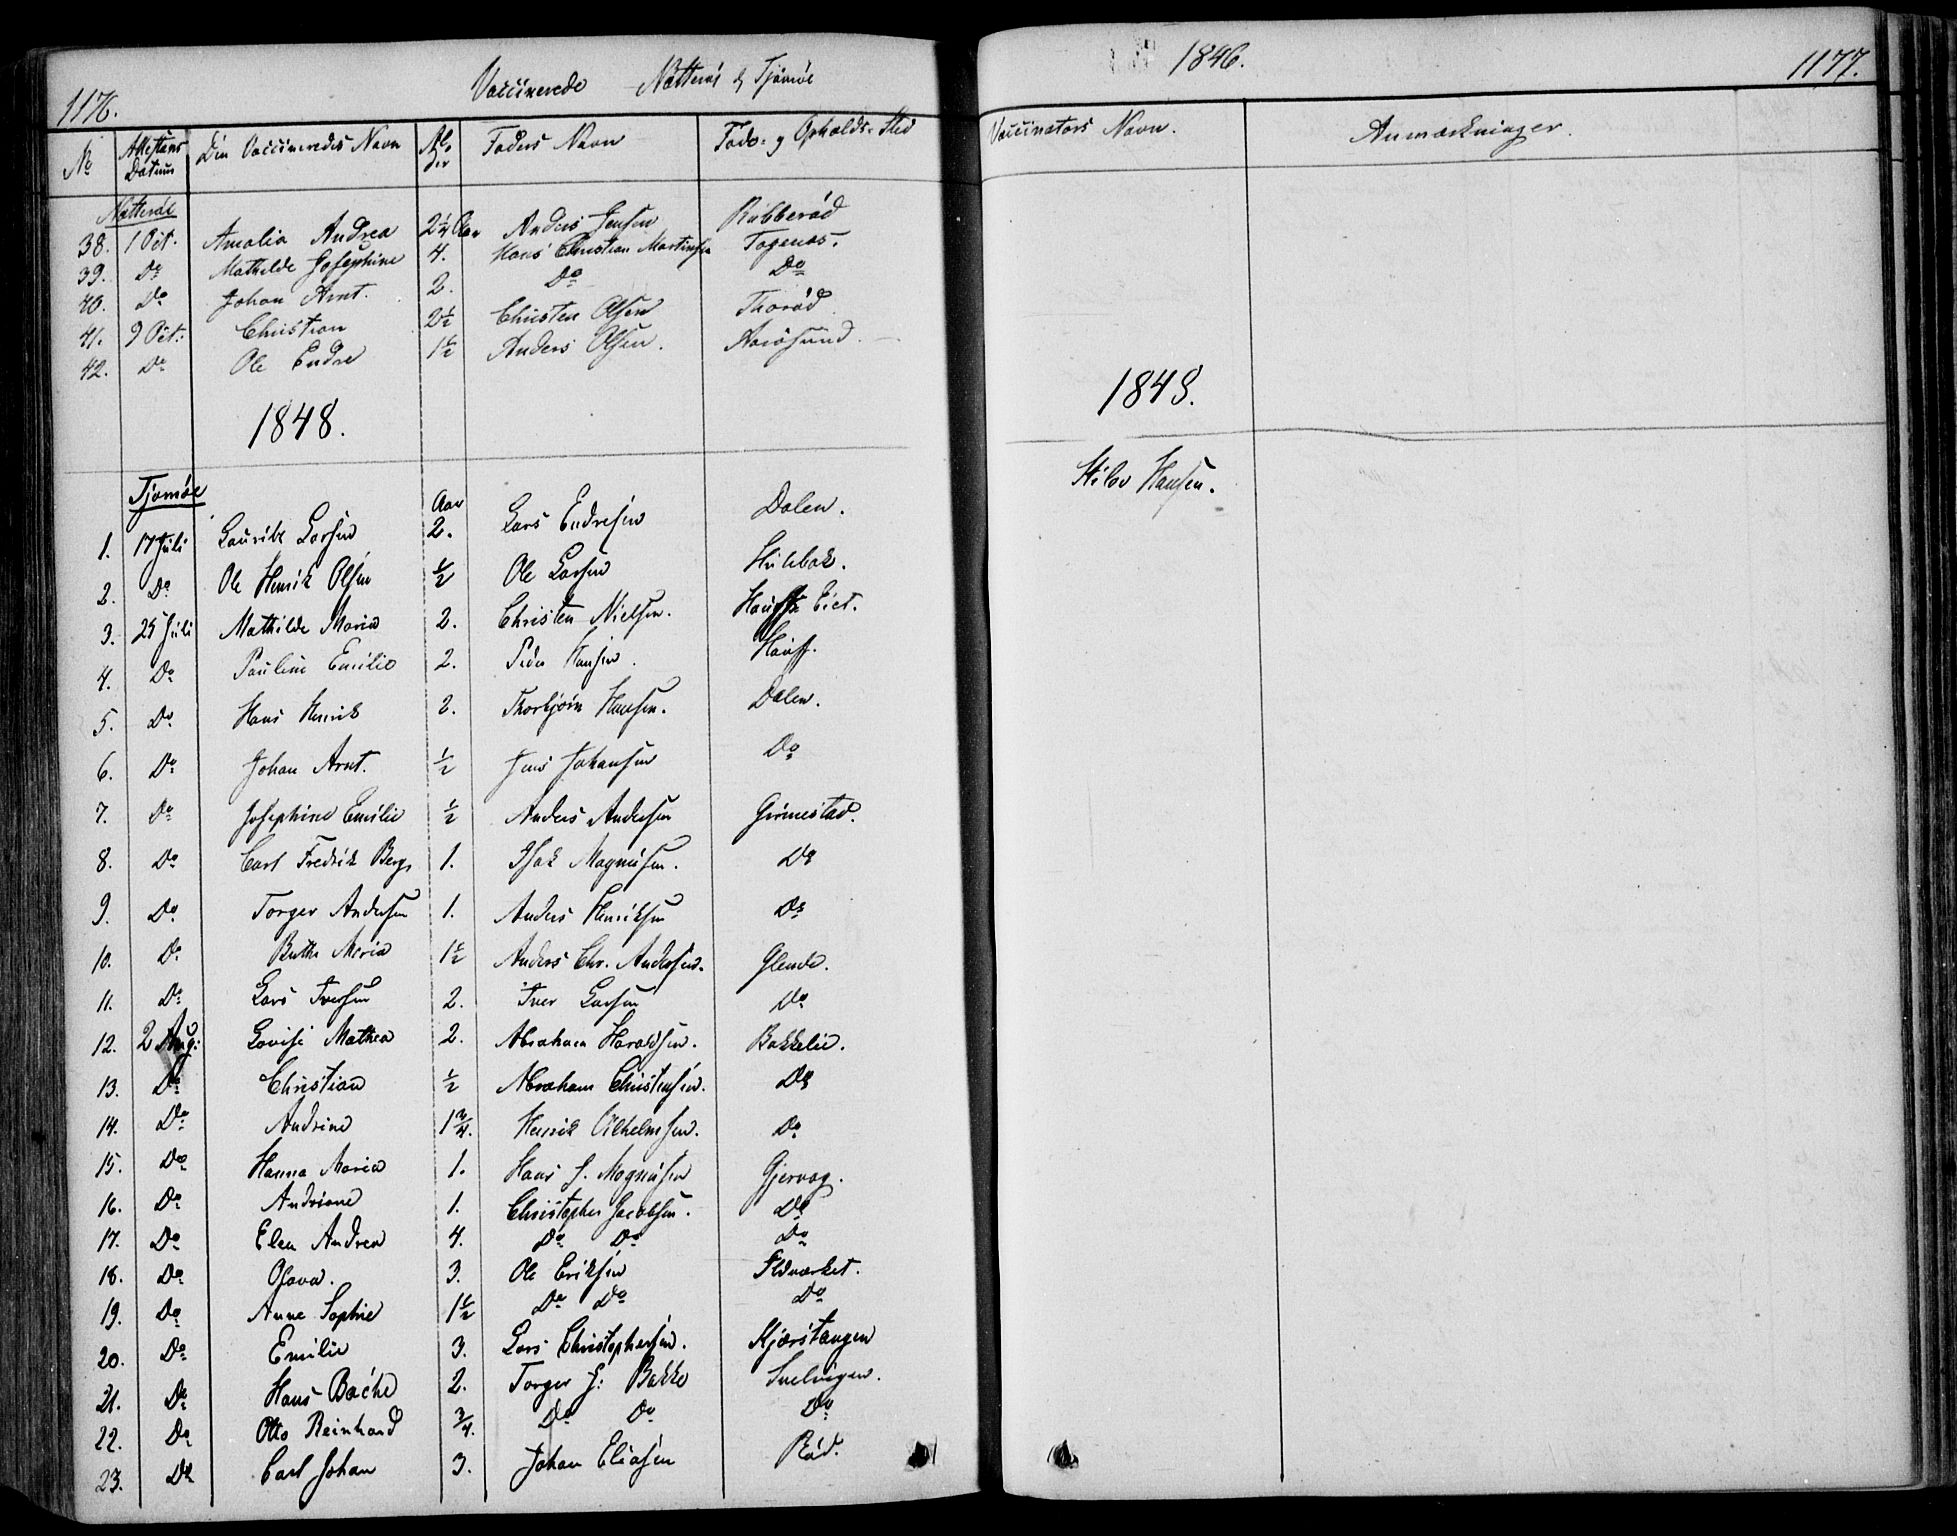 1176.
Vaccinerede Nötteröe & Tjömöe
No Attestens Datum Den Vaccineredes Navn Al-der Faders Navn Føde- og Opholds-Sted
Nötteröe
38. 1 Oct. Amalia Andrea 2½ Aar Anders Jensen Rubberöd
39. Do Mathilde Josephine 4. Hans Christian Martinsen Togenæs.
40. Do Johan Arnt. 2. Do Do
41. 9 Oct: Christian 2½ Christen Olsen Thoröd
42. Do Ole Endre 1½ Anders Olsen. Aarösund.
1848.
Tjömöe
Aar
1. 17 Juli Lauritz Larsen 2. Lars Endresen Dalen.
2. Do Ole Henrik Olsen ½ Ole Larsen Hulebak.
3. 25 Juli Mathilde Maria 2. Christen Nielsen. Eiet.
4. Do Pauline Emilie 2. Peder Hansen.
5. Do Hans Henrik 2. Thorbjørn Hansen. Dalen.
6. Do Johan Arnt. ½ Jens Johansen Do
7. Do Josephine Emilie ½ Anders Andersen Grimestad.
8. Do Carl Fredrik Berg, 1. Isak Magnusen. Do
9. Do Torger Andersen 1. Anders Henriksen Do
10. Do Maria 1½ Anders Chr. Andersen. Glende.
11. Do Lars Iversen 2. Iver Larsen Do
12. 2 Aug: Lovise Mathea 2. Abraham Haraldsen. Bakkelie.
13. Do Christian ½ Abraham Christensen. Do
14. Do Andrine 1¾. Henrik Vilhelmsen. Do
15. Do Hanna Maria 1. Hans J. Magnusen Gjervog.
16. Do Andriane 1. Christopher Jacobsen. Do
17. Do Elen Andrea 4. Do Do Do
18. Do Olava. 3. Ole Eriksen Sldværket.
19. Do Anne Sophie 1½ Do Do Do
20. Do Emilie 3. Lars Christophersen. Kjærstangen
21. Do Hans Bache 2. Torger J: Bakke Snelvigen.
22. Do Otto Reinhard ¾. Do Do Do
23. Do Carl Johan 3. Johan Eliasen Röd.
1846.
1177.
Vaccinators Navn. Anmærkninger.
1848.
Hansen.